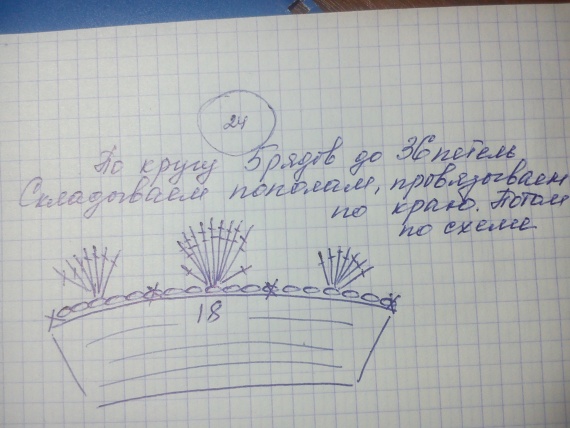 24
По кругу 5 рядов до 36 петель
Складываем пополам, провязываем
по краю. Потом
по схеме
18